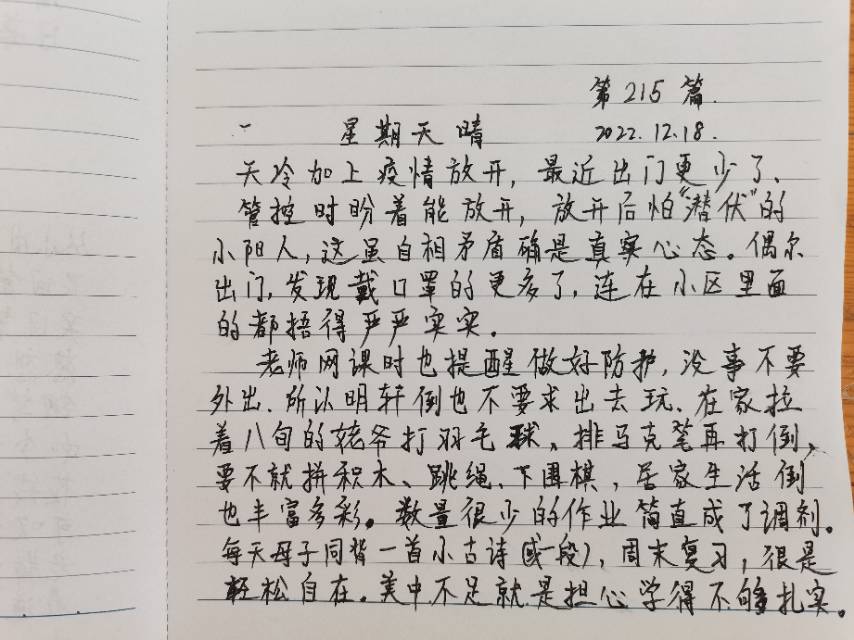 第215篇.
星期天 晴 2022.12.18.
天冷加上疫情放开，最近出门更少了、
管控时盼着能放开，放开后怕“潜伏”的
小阳人，这虽自相矛盾确是真实心态。偶尔
出门，发现戴口罩的更多了，连在小区里面
的都捂得严严实实。
老师网课时也提醒做好防护，没事不要
外出．所以明轩倒也不要求出去玩、在家拉
着八旬的姥爷打羽毛球、排马克笔再打倒、
要不就拼积木、跳绳、下围棋，居家生活倒
也丰富多彩。数量很少的作业简直成了调剂。
每天母子同背一首小古诗（或一段），周末复习，很是
轻松自在．美中不足就是担心学得不够扎实。